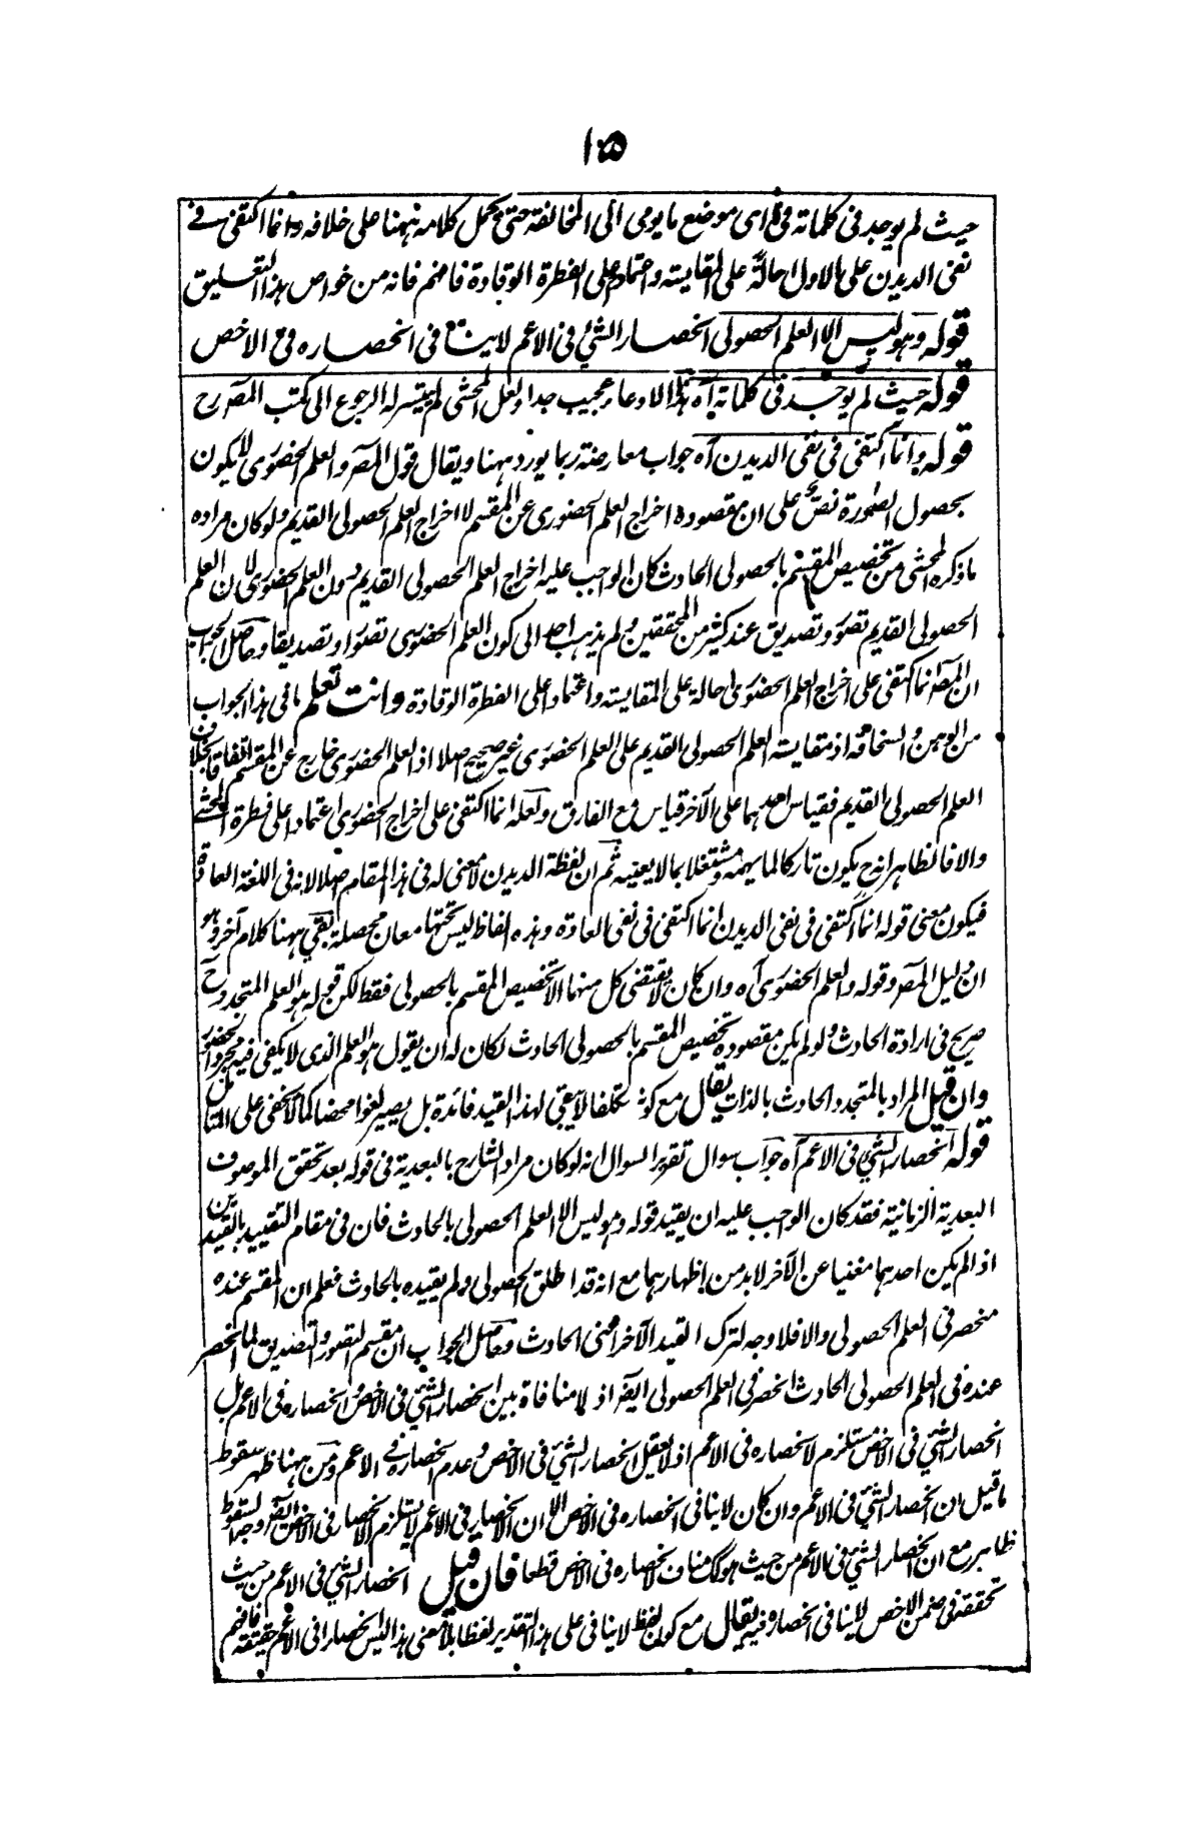 ١٥
حيث لم يوجد فى كلماته فى اى موضع ما يومى الى المخالفة حتى يحمل كلامه ههنا على خلافه وانما اكتفى فے
نفى الديدن على الاول احالةً على المقايسته واعتمادا على الفطرة الوقادة فافهم فانه من خواص هذا التعليق
قوله وهو ليس الا العلم الحصولى انحصار الشئ فى الاعم لاينافى انحصاره فى الاخص
قوله حيث لم يوجد فى كلماته آه هذا الادعاء عجيب جدا ولعل المحشى لم يتيسر له الرجوع الى كتب المصرح
قوله وانما اكتفى فى نفى الديدن آه جواب معارضة ربما يورد ههنا ويقال قول المصر والعلم الحضورى لا يكون
بحصول الصورة نصٌ على ان مقصوده اخراج العلم الحضورى عن المقسم لا اخراج العلم الحصولى القديم ولو كان مراده
ما ذكره المحشى من تخصيص المقسم بالحصولى الحادث كان الواجب عليه اخراج العلم الحصولى القديم دون العلم الحضورى لان العلم
الحصولى القديم تصور وتصديق عند كثير من المحققين ولم يذهب احد الى كون العلم الحضورى تصورا وتصديقا وحاصل الجواب
ان المصر انما اكتفى على اخراج العلم الحضورى احالة على المقايسته واعتمادا على الفطرة الوقادة وانت تعلم ما فى هذا الجواب
من الوهن والسخافة اذ مقايسته العلم الحصولى القديم على العلم الحضورى غير صحيح اصلا اذ العلم الحضورى خارج عن المقسم اتفاقا بخلاف
العلم الحصولى القديم فقياس احدهما على الآخر قياس مع الفارق ولعله انما اكتفى على اخراج الحضورى اعتمادا على فطرة المحشى
والا فالظاهر انه ح يكون تاركا لما يهمه ومشتغلا بما لا يعنيه ثم ان لفظة الديدن لا معنى له فى هذا المقام اصلا لانه فى اللغة العادة
فيكون معنى قوله انما اكتفى فى نفى الديدن انما اكتفى فى نفى العادة وهذه الفاظ ليس تحتها معان محصلة بقى ههنا كلام آخر وهو
ان دليل المصر وقوله والعلم الحضورى آه وان كان لا يقتضى كل منهما الا تخصيص المقسم بالحصولى فقط لكن قوله هو العلم المتجدد ح
صريح فى ارادة الحادث ولو لم يكن مقصوده تخصيص المقسم بالحصولى الحادث لكان له ان يقول هو العلم الذى لا يكفى فيه مجرد الحضور
وان قيل المراد بالمتجدد الحادث بالذات يقال مع كونه تكلفا لا يبقى لهذا القيد فائدة بل يصير لغوا محضا كما لا يخفى على المتأمل
قوله انحصار الشئ فى الاعم آه جواب سوال تقرير السوال انه لو كان مراد الشارح بالبعدية فى قوله بعد تحقق الموصوف
البعدية الزمانية فقد كان الواجب عليه ان يقيد قوله وهو ليس الا العلم الحصولى بالحادث فان فى مقام التقييد بالقيدين
اذا لم يكن احدهما مغنيا عن الآخر لابد من اظهارهما مع انه قد اطلق الحصولى ولم يقيده بالحادث فعلم ان المقسم عنده
منحصر فى العلم الحصولى والا فلا وجه لترك القيد الآخر اعنى الحادث وحاصل الجواب ان مقسم التصور والتصديق لما انحصر
عنده فى العلم الحصولى الحادث انحصر فى العلم الحصولى ايضا اذ لا منافاة بين انحصار الشئ فى الاخص وانحصاره فى الاعم بل
انحصار الشئ فى الاخص مستلزم لانحصاره فى الاعم اذ لا يعقل انحصار الشئ فى الاخص وعدم انحصاره فے الاعم ومن ههنا ظهر سقوط
ما قيل ان انحصار الشئ فى الاعم وان كان لا ينافى انحصاره فى الاخص الا ان الانحصار فى الاعم لا يستلزم الانحصار فى الاخص ايضا وجه السقوط
ظاهر مع ان انحصار الشئ فى الاعم من حيث هو كك مناف لانحصاره فى الاخص قطعا فان قيل انحصار الشئ فى الاعم من حيث
تحققه فى ضمن الاخص لا ينافى انحصاره فيه يقال مع كون لفظ لا ينافى على هذا التقدير لفظا بلا معنى هذا ليس انحصارا فى الاعم حقيقة فافهم